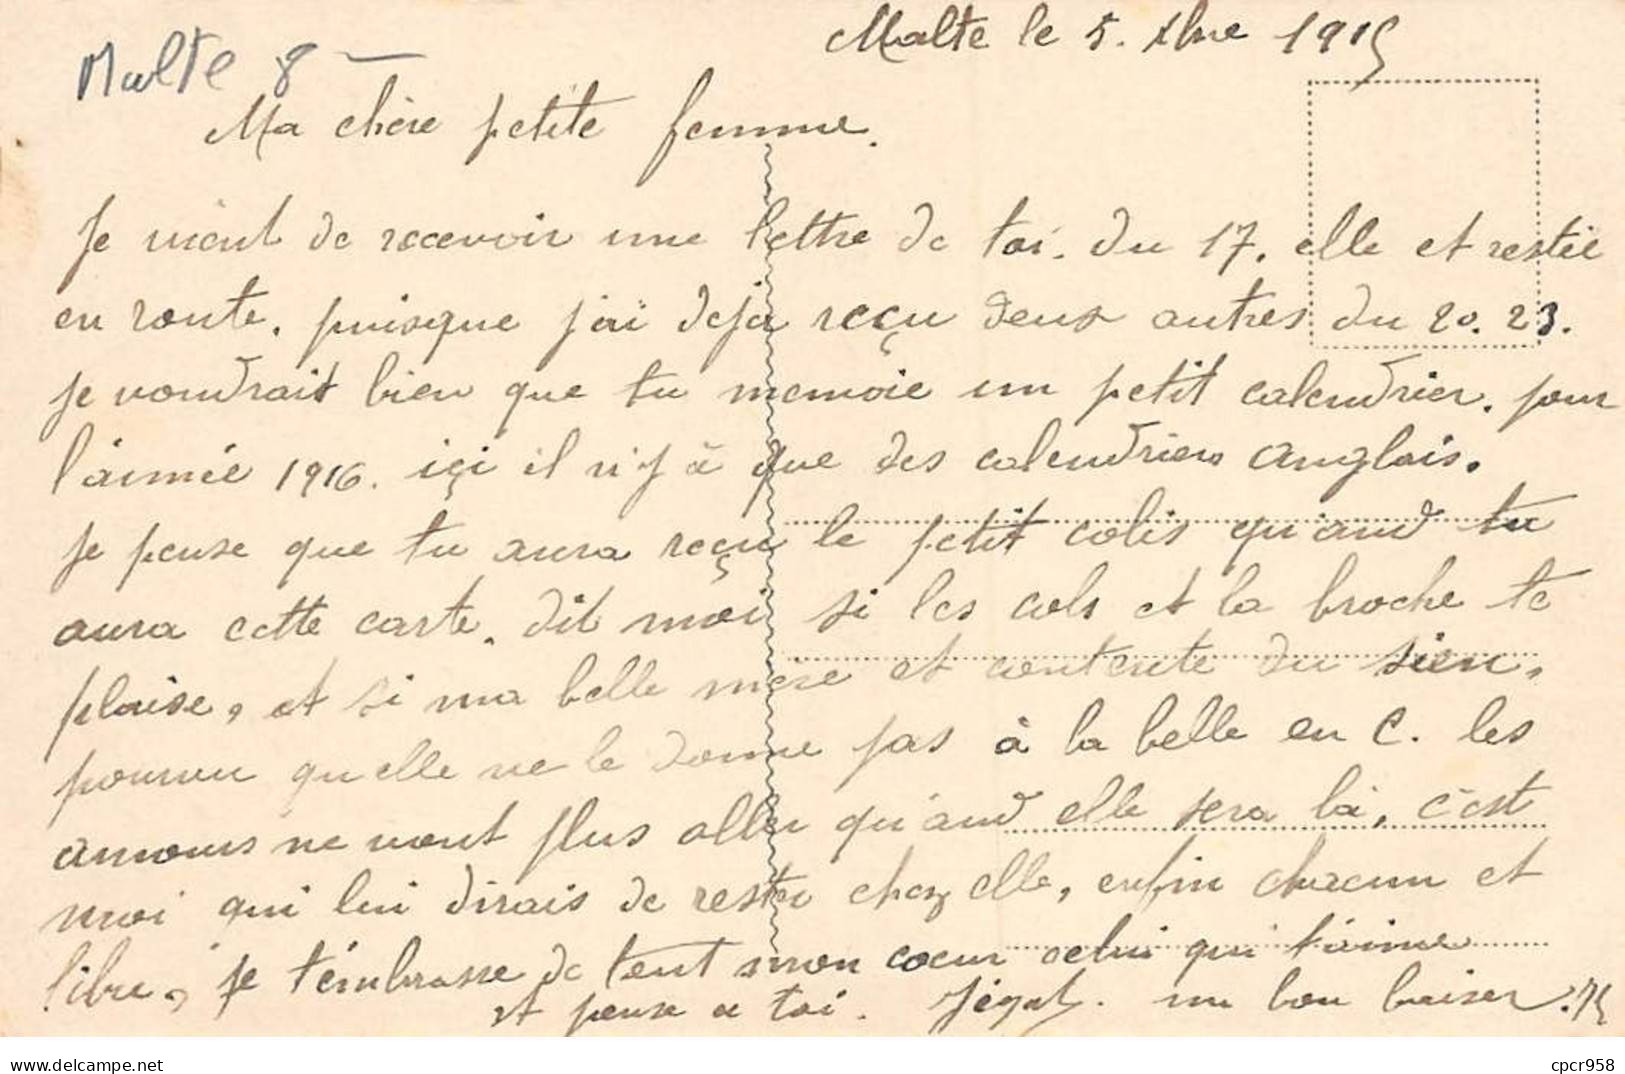 Malte le 5. Xbre 1915
Malte 8 —
Ma chère petite femme.
Je vient de recevoir une lettre de toi. du 17. elle et restée
en route. puisque j'ai deja reçu deux autres du 20. 23.
je voudrait bien que tu menvoie un petit calendrier. pour
l'année 1916. içi il n'y à que des calendriers anglais.
je pense que tu aura reçu le petit colis qu'and tu
aura cette carte. dit moi si les cols et la broche te
plaise, et si ma belle mère et contente du sien,
pourvu quelle ne le donne pas à la belle en C. les
amours ne vont plus aller qu'and elle sera là, c'est
moi qui lui dirais de rester chez elle, enfin chacun et
libre, je t'embrasse de tout mon coeur celui qui t'aime
et pense a toi. un bon baiser.
Delcampe.net
cpcr958